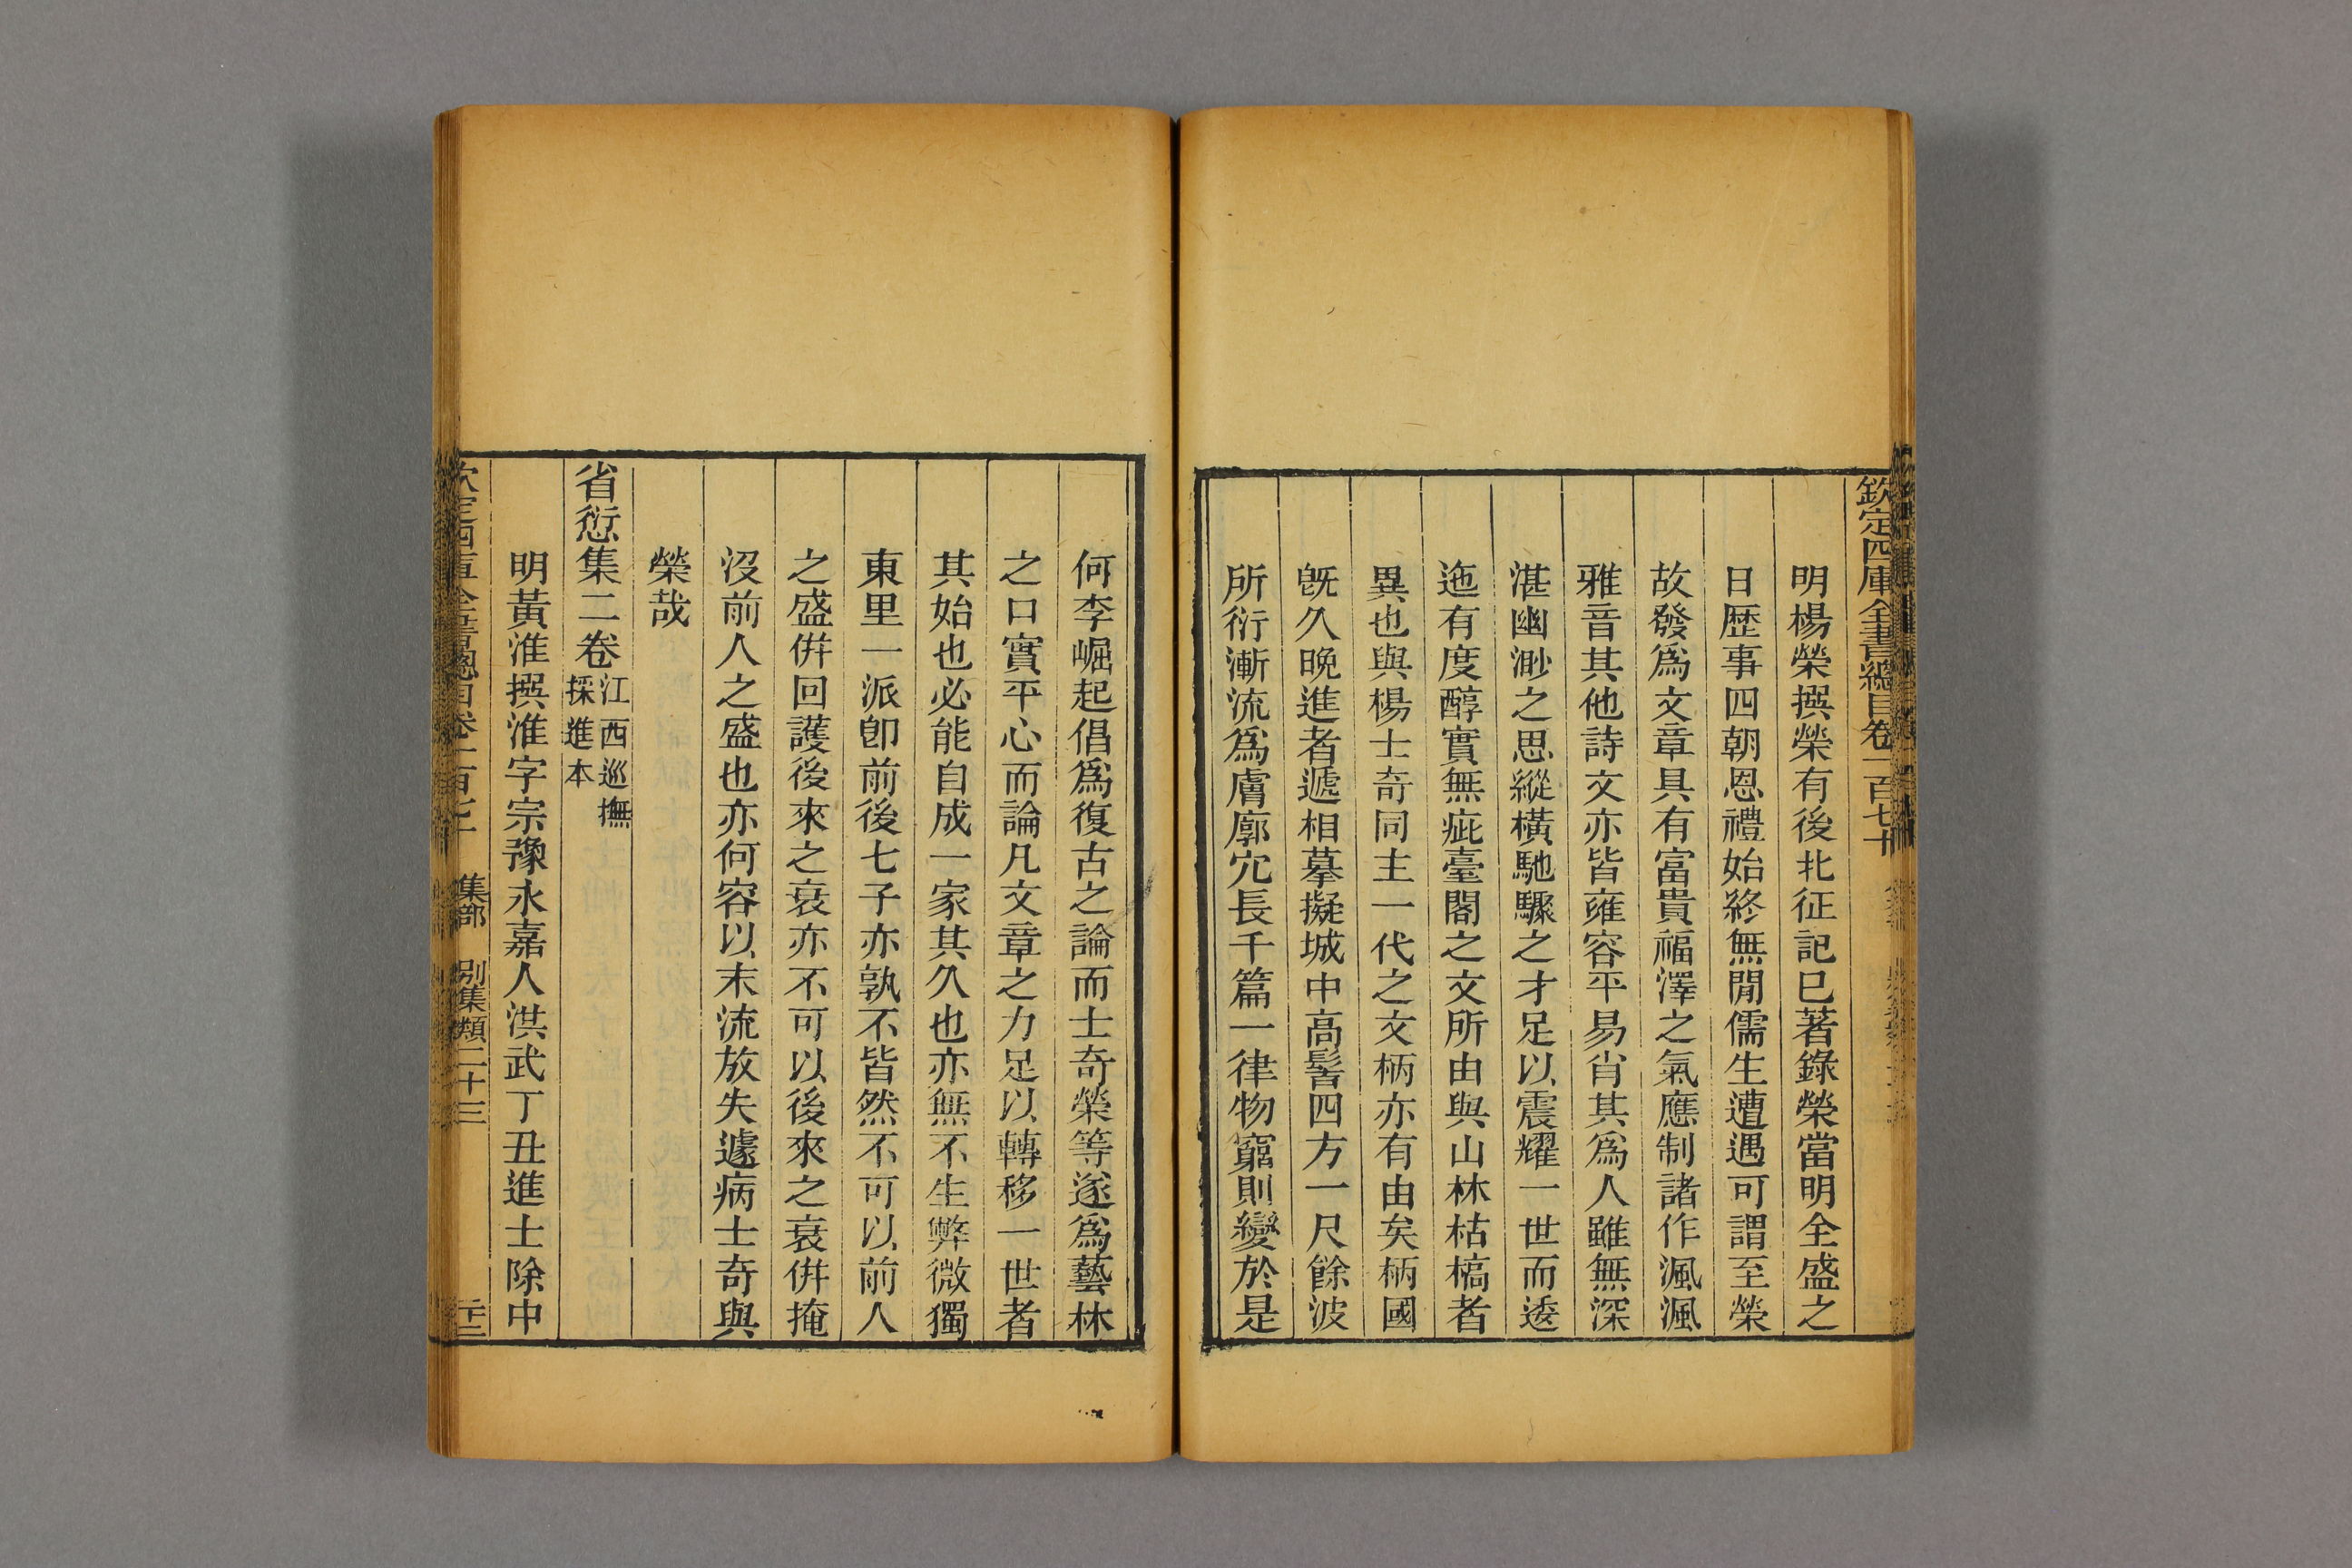 欽定四庫全書總目卷一百七十
明楊榮撰榮有後北征記已著錄榮當明全盛之
日歷事四朝恩禮始終無閒儒生遭遇可謂至榮
故發爲文章具有富貴福澤之氣應制諸作渢渢
雅音其他詩文亦皆雍容平易肖其爲人雖無深
湛幽渺之思縱橫馳驟之才足以震耀一世而逶
迤有度醇實無疵臺閣之文所由與山林枯槁者
異也與楊士奇同主一代之文柄亦有由矣柄國
旣久晚進者遞相摹擬城中高髻四方一尺餘波
所衍漸流爲膚廓宂長千篇一律物窮則變於是
何李崛起倡爲復古之論而士奇榮等遂爲藝林
之口實平心而論凡文章之力足以轉移一世者
其始也必能自成一家其久也亦無不生弊微獨
東里一派卽前後七子亦孰不皆然不可以前人
之盛倂回護後來之衰亦不可以後來之衰倂掩
沒前人之盛也亦何容以末流放失遽病士奇與
榮哉
省愆集二卷江西巡撫採進本
明黃淮撰淮字宗豫永嘉人洪武丁丑進士除中
欽定四庫全書總目卷一百七十 集部 別集類二十三 二十二